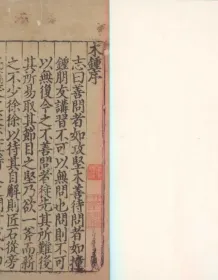 木鍾序
志曰善問者如攻堅木善待問者如撞
鍾朋友講習不可以無問也問則不可
以無復今之不善問者徃先其所難後
其所易取其節目之堅乃欲一斧而斯
之不徐徐以待其自解則匠石從旁